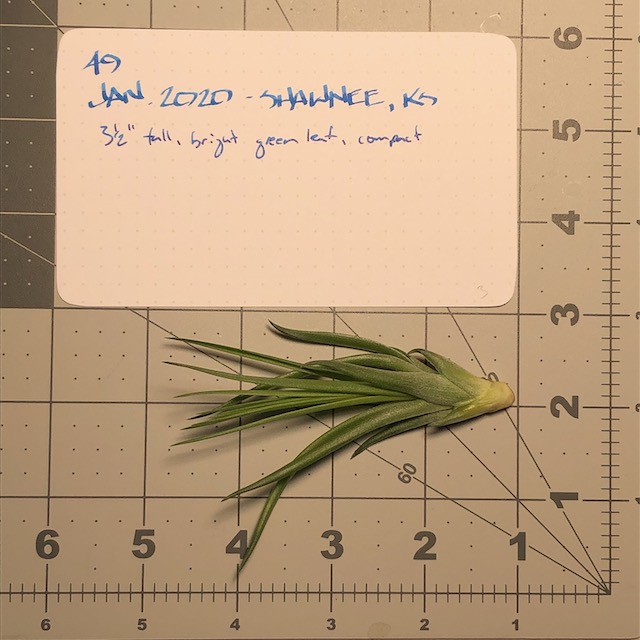 49
JAN. 2020 - SHAWNEE, KS
3½" tall, bright green leaf, compact
3
6
5
4
3
2
1
60
6 5 4 3 2 1
6 5 4 3 2 1